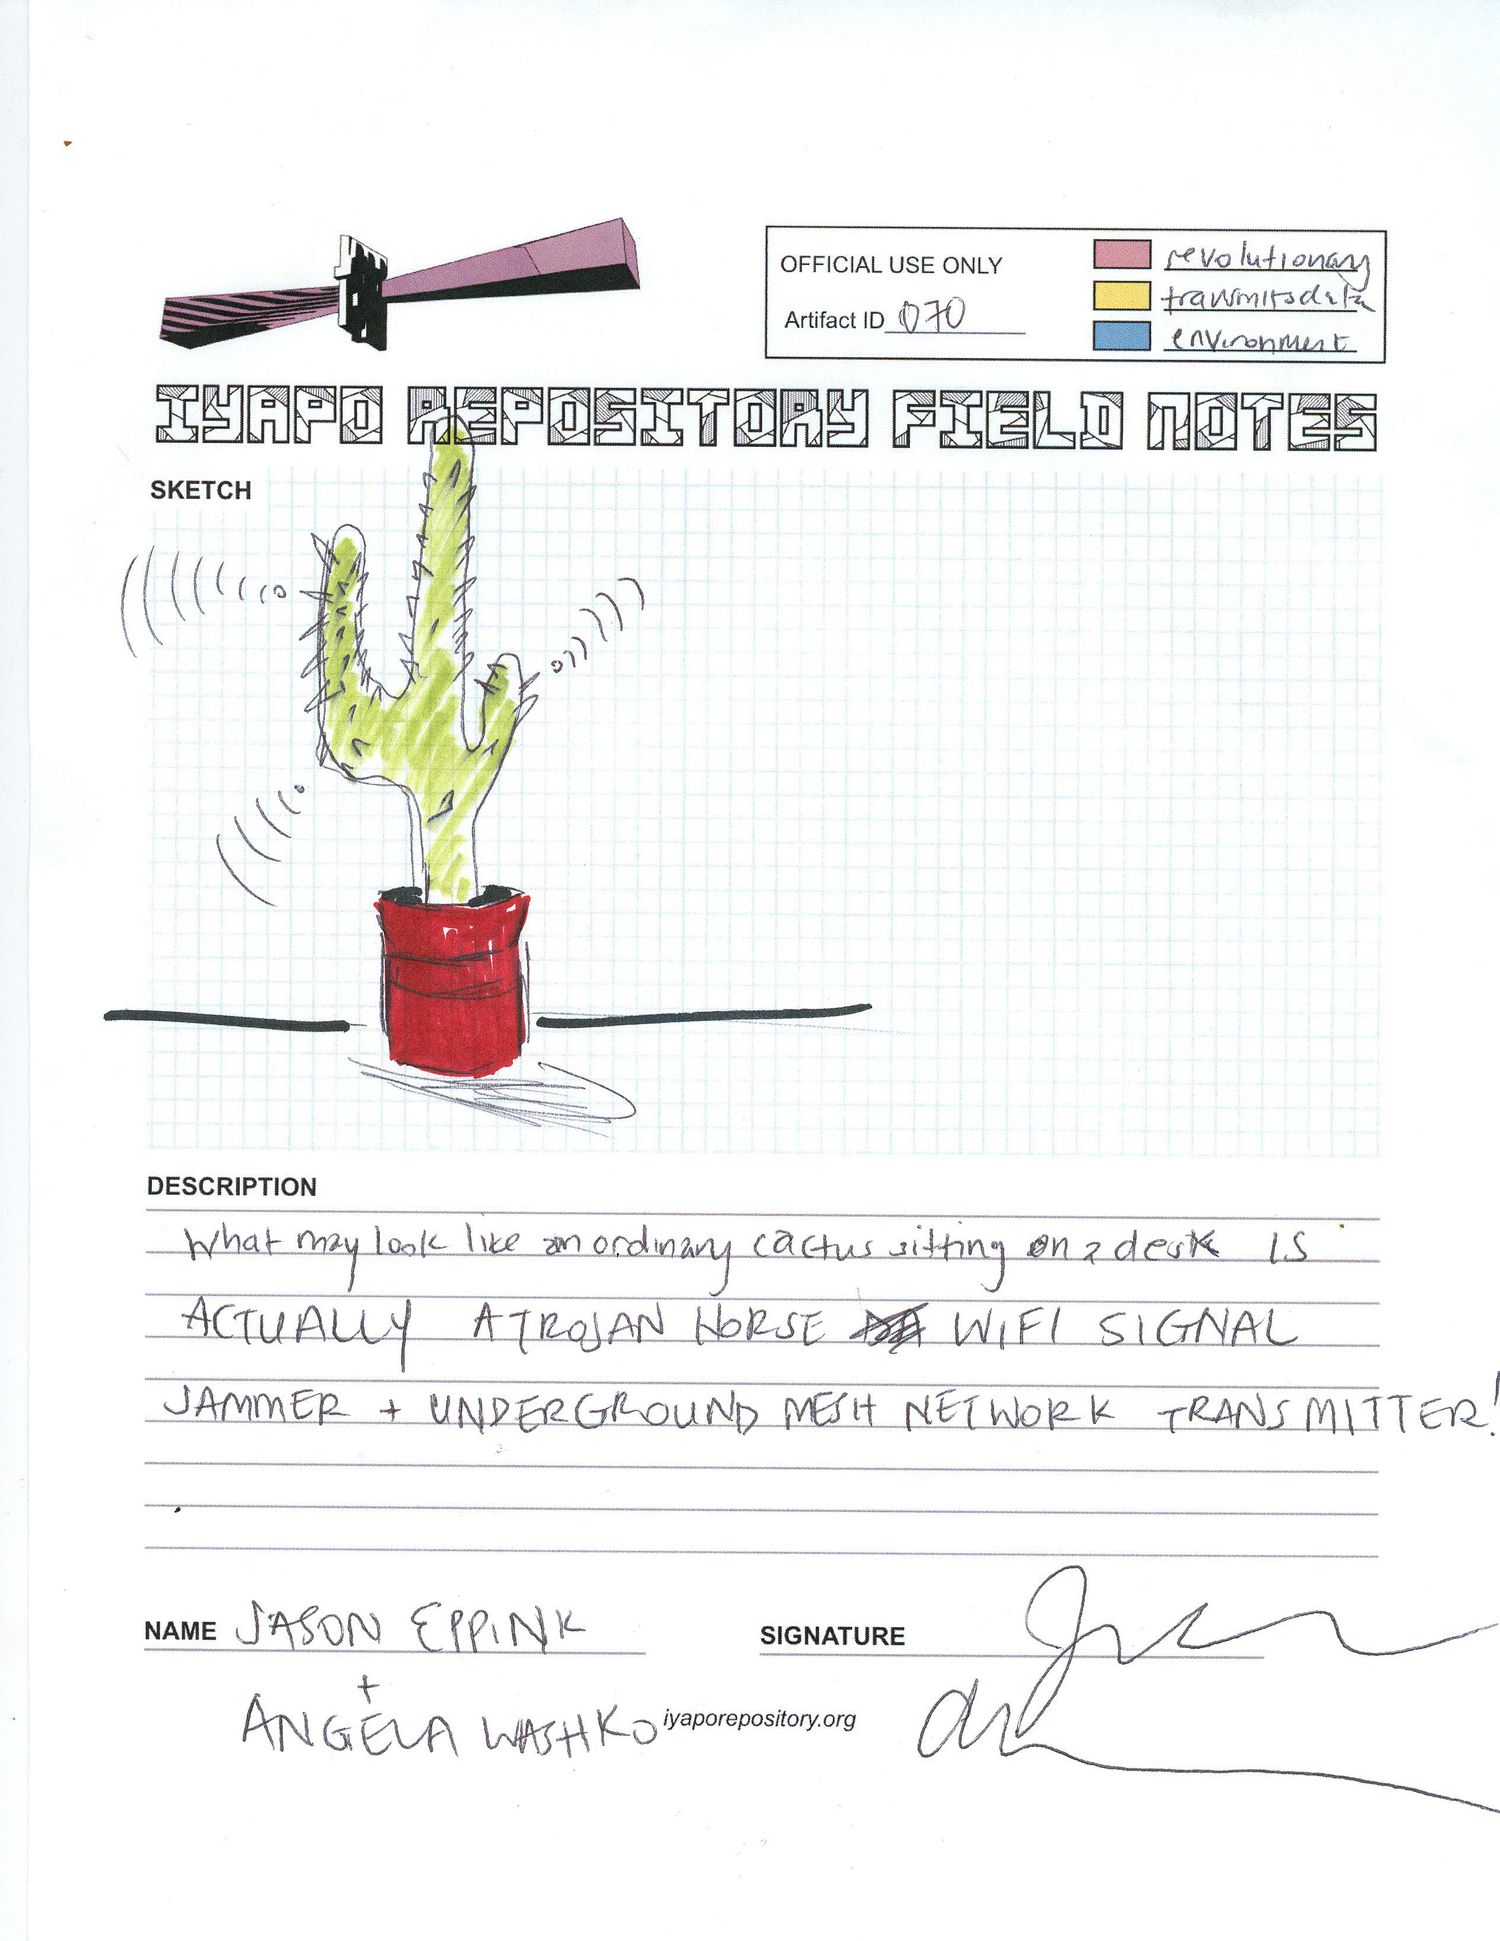 OFFICIAL USE ONLY
Artifact ID 070
revolutionary
transmits data
environment
IYAPO REPOSITORY FIELD NOTES
SKETCH
DESCRIPTION
What may look like an ordinary cactus sitting on a desk IS
ACTUALLY A TROJAN HORSE WIFI SIGNAL
JAMMER + UNDERGROUND MESH NETWORK TRANSMITTER!
NAME JASON EPPINK
+
ANGELA WASHKO
SIGNATURE
iyaporepository.org